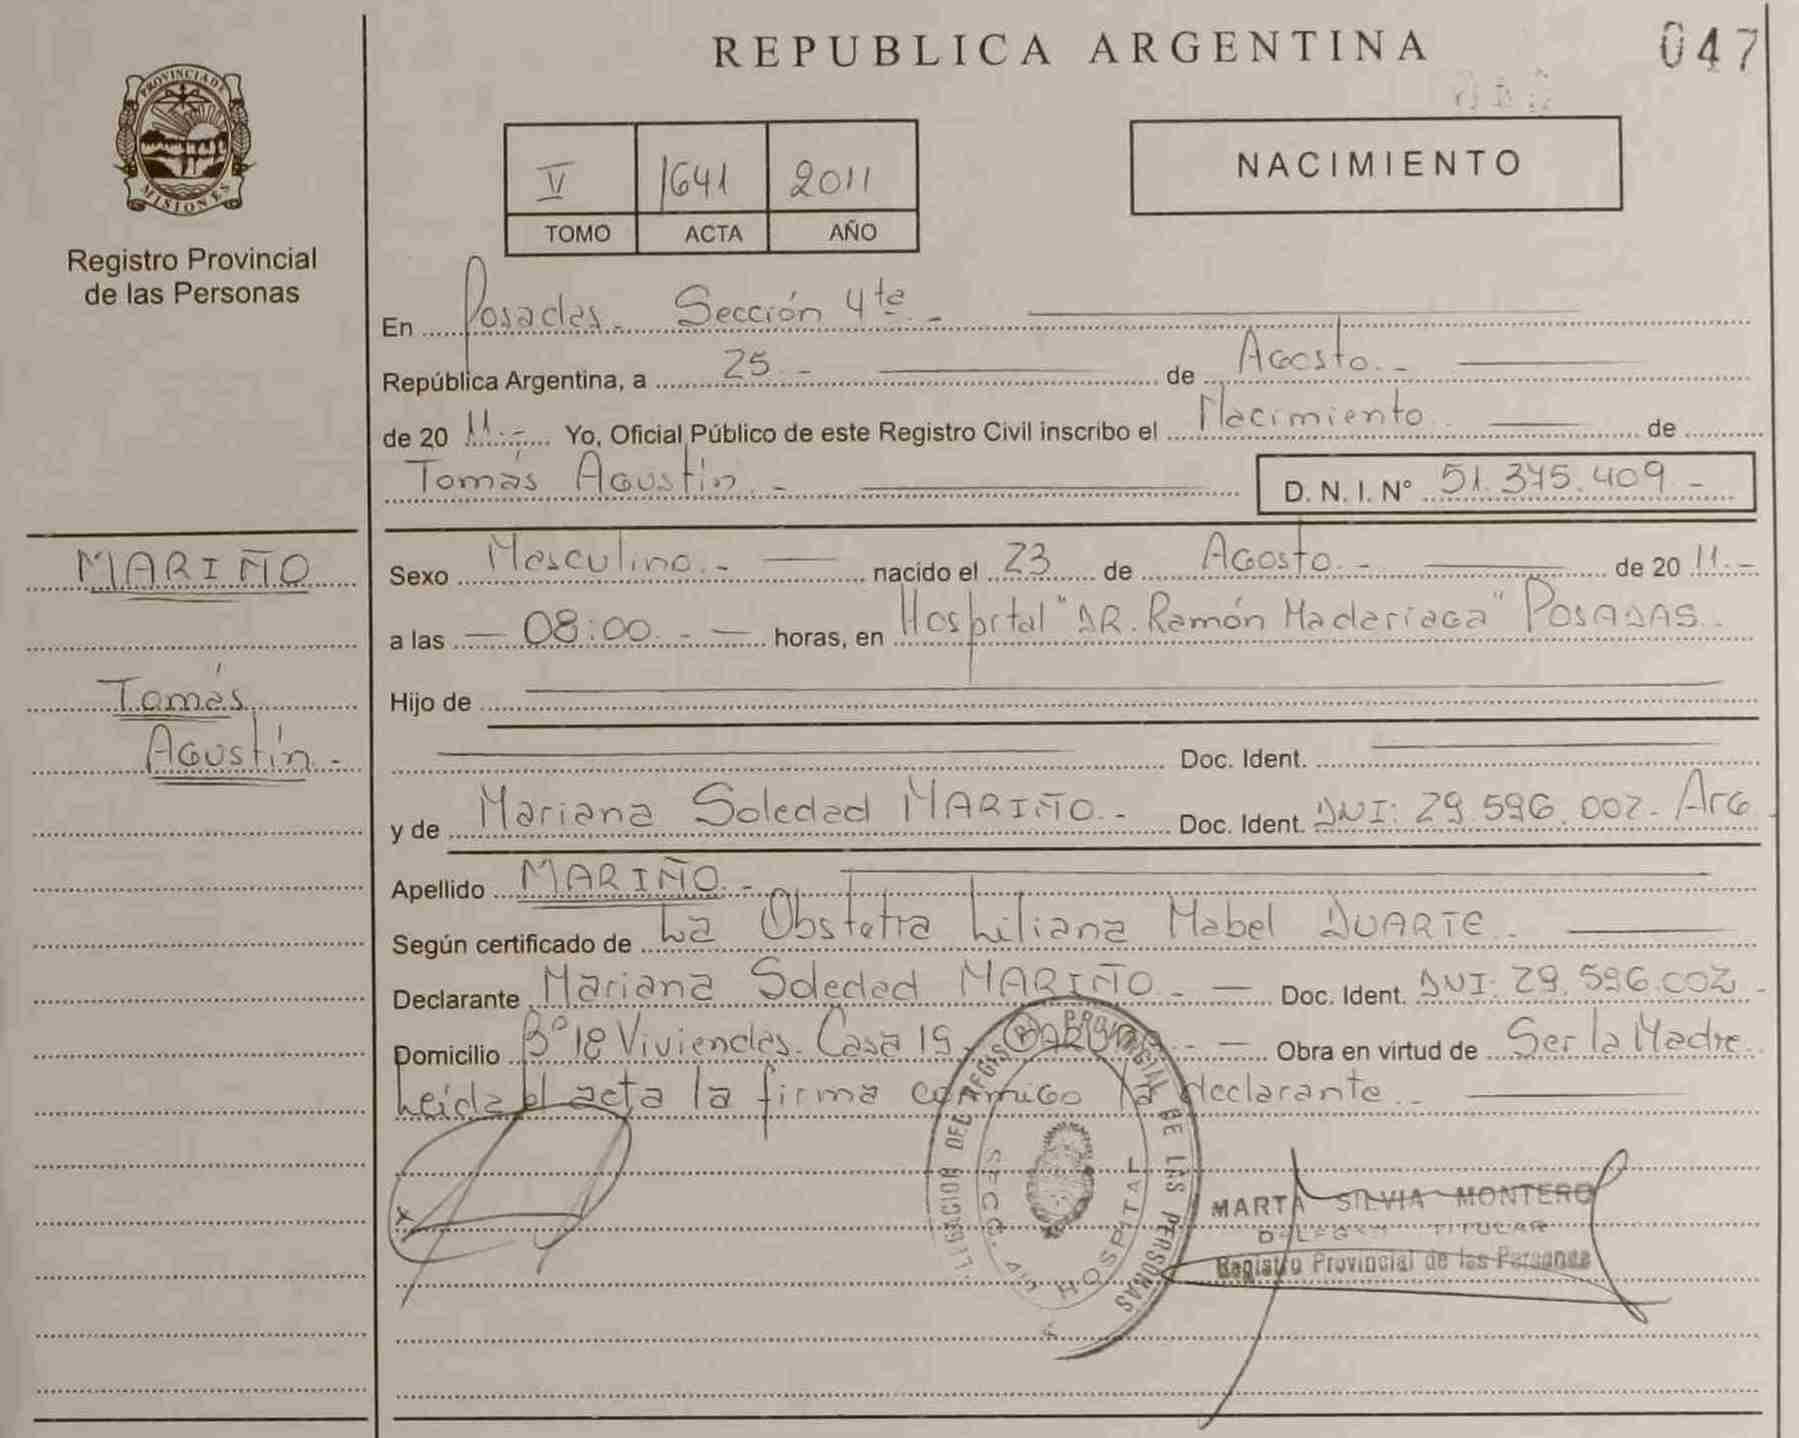 REPUBLICA ARGENTINA
047
PROVINCIA DE
MISIONES
Registro Provincial
de las Personas
V 1641 2011
TOMO ACTA AÑO
NACIMIENTO
En Posadas - Sección 4ta -
República Argentina, a 25 - de Agosto. -
de 20 11.- Yo, Oficial Público de este Registro Civil inscribo el Nacimiento de
Tomás Agustín. - D. N. I. N° 51.375.409 -
MARIÑO
Tomás
Agustín -
Sexo Masculino. - nacido el 23 de Agosto. - de 20 11.-
a las — 08:00. - — horas, en Hospital "DR. Ramón Madariaga" POSADAS.
Hijo de
Doc. Ident.
y de Mariana Soledad MARIÑO. - Doc. Ident. DNI: 29.596.002. Arg.
Apellido MARIÑO. -
Según certificado de La Obstetra Liliana Mabel DUARTE.
Declarante Mariana Soledad MARIÑO - — Doc. Ident. DNI: 29.596.002 -
Domicilio B° 18 Viviendas. Casa 19 - — Obra en virtud de Ser la Madre.
Leída el acta la firma conmigo la declarante. -
PROVINCIAL DE LAS PERSONAS
SECC. 4ta HOSPITAL
MARTA SILVIA MONTERO
TITULAR
Registro Provincial de las Personas